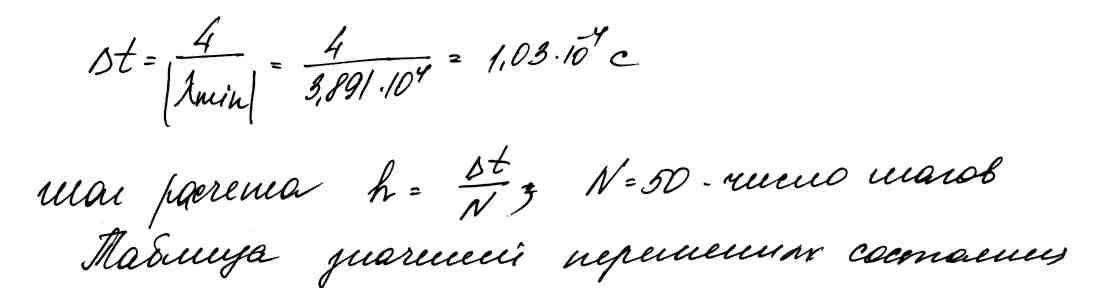 Δt = 4 / |λmin| = 4 / 3,891·10⁴ = 1,03·10⁻⁴ с
шаг расчета h = Δt / N ; N = 50 - число шагов
Таблица значений переменных состояния